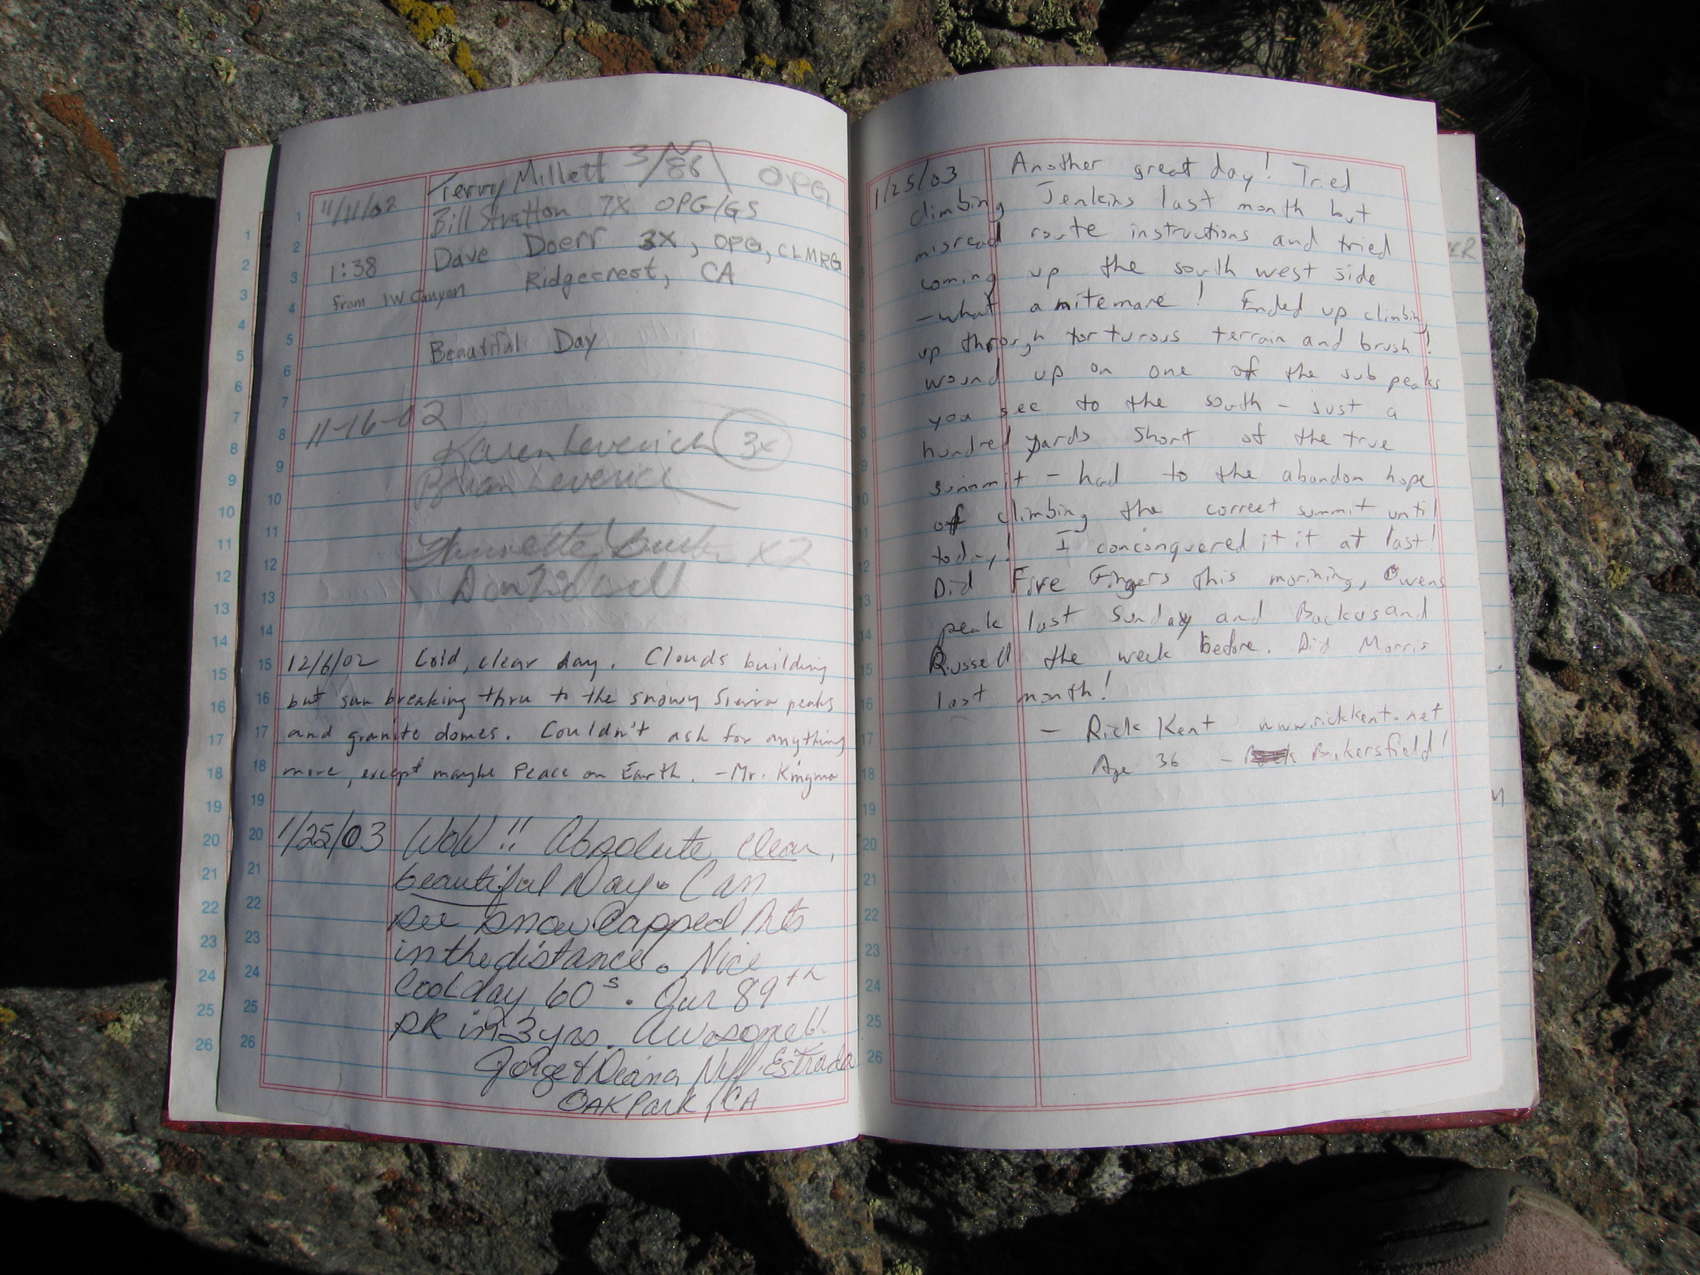 11/11/02 Terry Millett 3/86 OPG
Bill Stratton 7X OPG/GS
1:38 Dave Doerr 3X, OPG, CLMRG
from IW Canyon Ridgecrest, CA
Beautiful Day
11-16-02
Karen Leverich 3x
Brian Leverich
X2
12/6/02 Cold, clear day. Clouds building
but sun breaking thru to the snowy Sierra peaks
and granite domes. Couldn't ask for anything
more, except maybe Peace on Earth. -Mr. Kingman
1/25/03 WoW!! Absolute clear,
beautiful Day. Can
see snow capped Mts
in the distance. Nice
Cool day 60s. Our 89th
pk in 3 yrs. Awesome!!
Jorge & Diana Neff-Estrada
OAK Park, CA
1/25/03 Another great day! Tried
climbing Jenkins last month but
misread route instructions and tried
coming up the south west side
- what a nitemare! Ended up climbing
up through torturous terrain and brush!
wound up on one of the sub peaks
you see to the south - just a
hundred yards short of the true
summit - had to the abandon hope
of climbing the correct summit until
today! I conconquered it it at last!
Did Five Fingers this morining, Owens
peak last Sunday and Backus and
Russell the week before. Did Morris
last month!
- Rick Kent www.rickkent.net
Age 36 - Bakersfield!